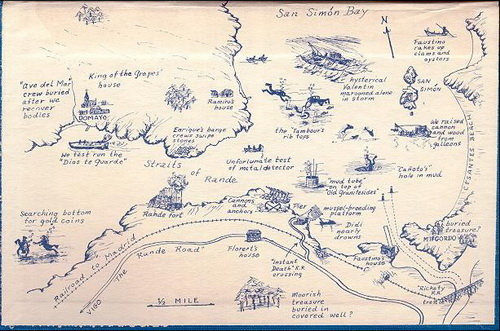 San Simón Bay
N
Faustino
rakes up
clams and
oysters
King of the Grapes'
house
"Ave del Mar"
crew buried
after we
recover
bodies
hysterical
Valentin
marooned alone
in storm
SAN
SIMÓN
DOMAYO
Ramiro's
house
the Tambour's
rib tops
we raise
cannon
and wood
from
galleons
Enrique's barge
crew swipe
stones
We test run the
"Dios te Guarde"
Straits
of
Rande
Unfortunate test
of metal detector
"mud tube"
on top of
"Old Granitesides"
"Cahoto's"
hole in mud
CESANTES BEACH
Searching bottom
for gold coins
Rande fort
Cannons
and
anchors
Pier
mussel-breeding
platform
Didi
nearly
drowns
buried
treasure?
MIFGORDO
Railroad to Madrid
THE
"Rande Road"
VIGO
Florert's
house
"Instant
Death" R.R.
crossing
Faustino's
house
"Rickety
R.R.
trestle"
½ MILE
Moorish
treasure
buried in
covered well?